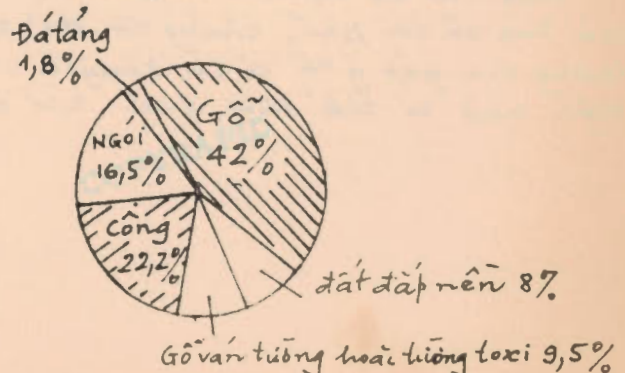 Đá tảng
1,8%
Gỗ
42%
NGÓI
16,5%
Công
22,2%
đất đắp nền 8%
Gỗ ván tường hoặc tường toxi 9,5%